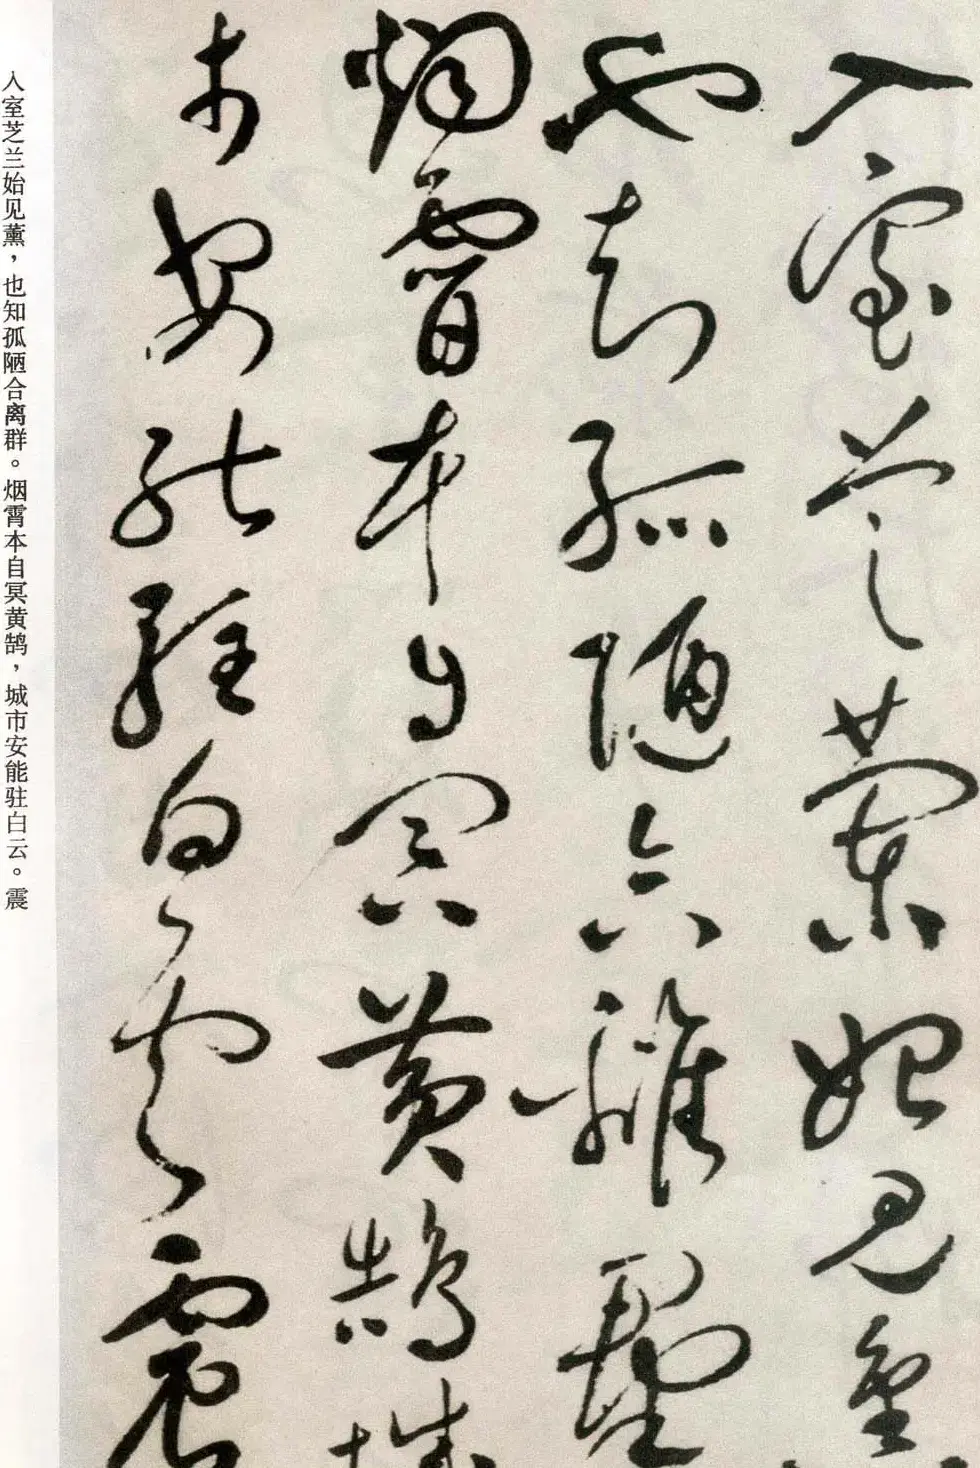 入室芝蘭始見薰
也知孤陋合離群
烟霄本自冥黃鵠城
市安能駐白雲震
入室芝兰始见薰，也知孤陋合离群。烟霄本自冥黄鹄，城市安能驻白云。震